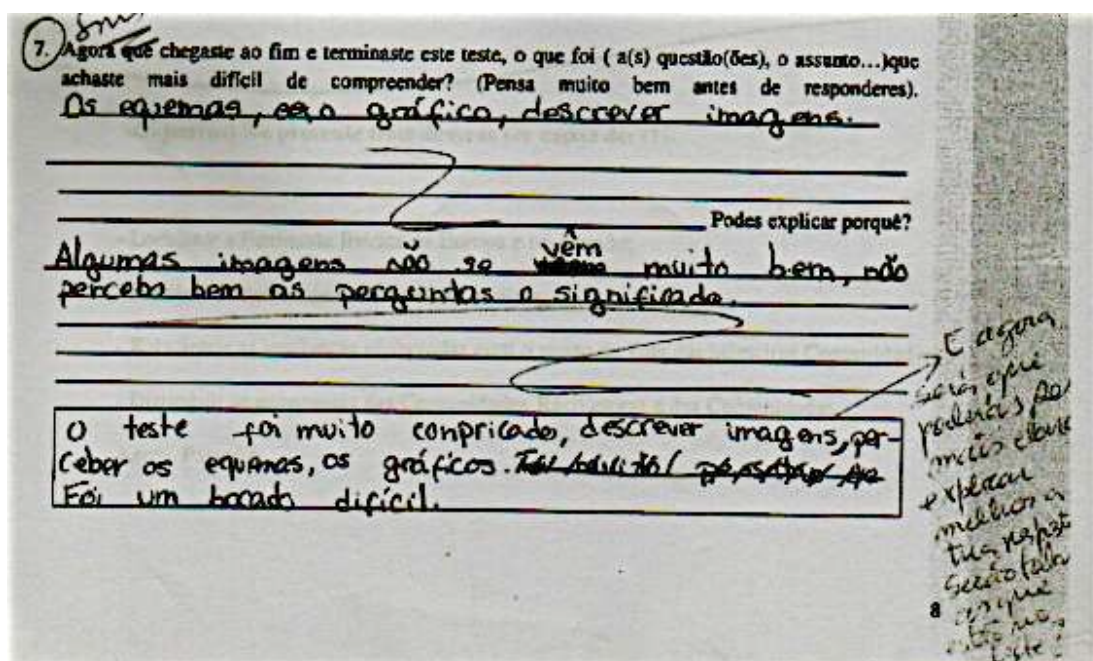 7. Agora que chegaste ao fim e terminaste este teste, o que foi ( a(s) questão(ões), o assunto…)que
achaste mais difícil de compreender? (Pensa muito bem antes de responderes).
Os equemas, o gráfico, descrever imagens.
Podes explicar porquê?
Algumas imagens não se vêm muito bem, não
percebo bem as perguntas o significado.
O teste foi muito conpricado, descrever imagens, per-
ceber os equemas, os gráficos.
Foi um bocado difícil.
E agora
será que
poderias
mais
explicar
melhor a
tua
8